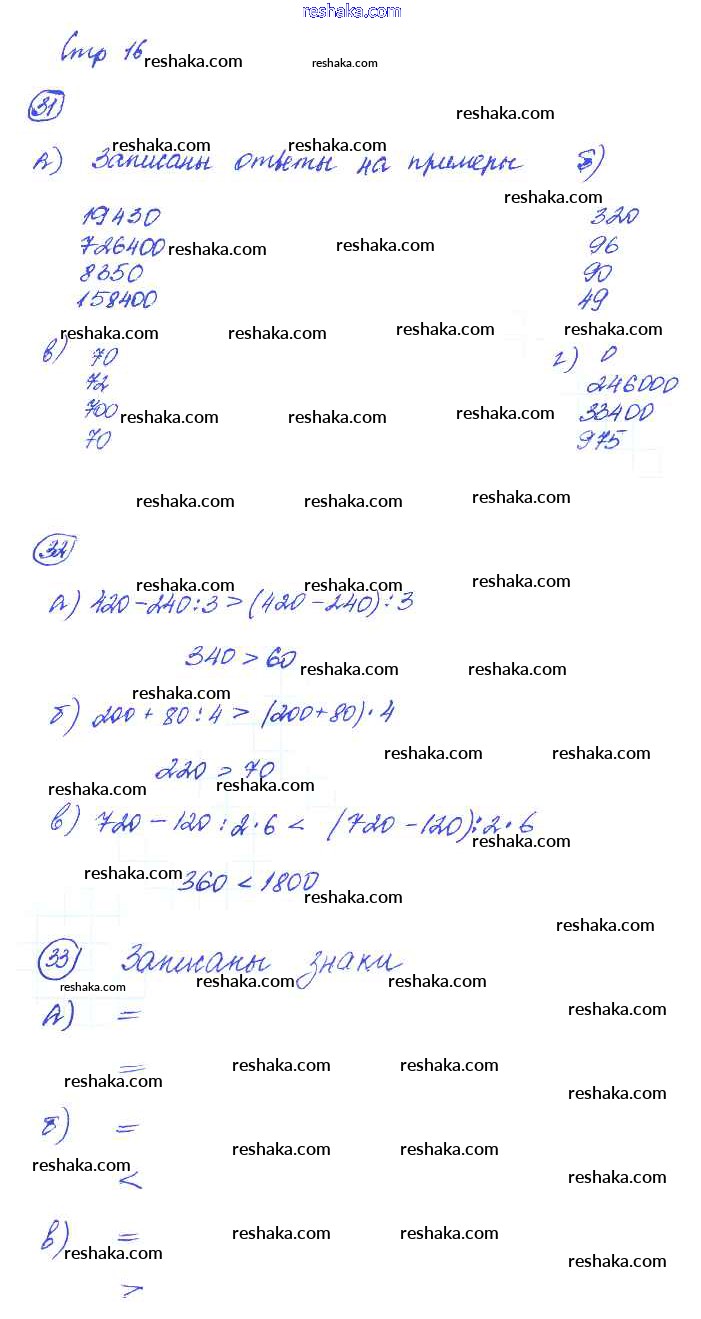 reshaka.com
Стр 16 reshaka.com reshaka.com
31 reshaka.com
reshaka.com reshaka.com
А) Записаны ответы на примеры Б)
reshaka.com
19430 320
726400 reshaka.com reshaka.com 96
8350 90
158400 49
reshaka.com reshaka.com reshaka.com reshaka.com
в) 70 г) 0
72 246000
700 reshaka.com reshaka.com reshaka.com 33400
70 975
reshaka.com reshaka.com reshaka.com
32
reshaka.com reshaka.com reshaka.com
а) 420-240:3 > (420-240):3
340 > 60 reshaka.com reshaka.com
reshaka.com
б) 200 + 80 : 4 > (200+80) · 4
reshaka.com reshaka.com
220 > 70
reshaka.com reshaka.com
в) 720 - 120 : 2 · 6 < (720 - 120) : 2 · 6
reshaka.com
reshaka.com
360 < 1800
reshaka.com
reshaka.com
33 Записаны знаки
reshaka.com reshaka.com reshaka.com
А) = reshaka.com
= reshaka.com reshaka.com
reshaka.com reshaka.com
Б) =
reshaka.com reshaka.com
reshaka.com
< reshaka.com
в) = reshaka.com reshaka.com
reshaka.com reshaka.com
>